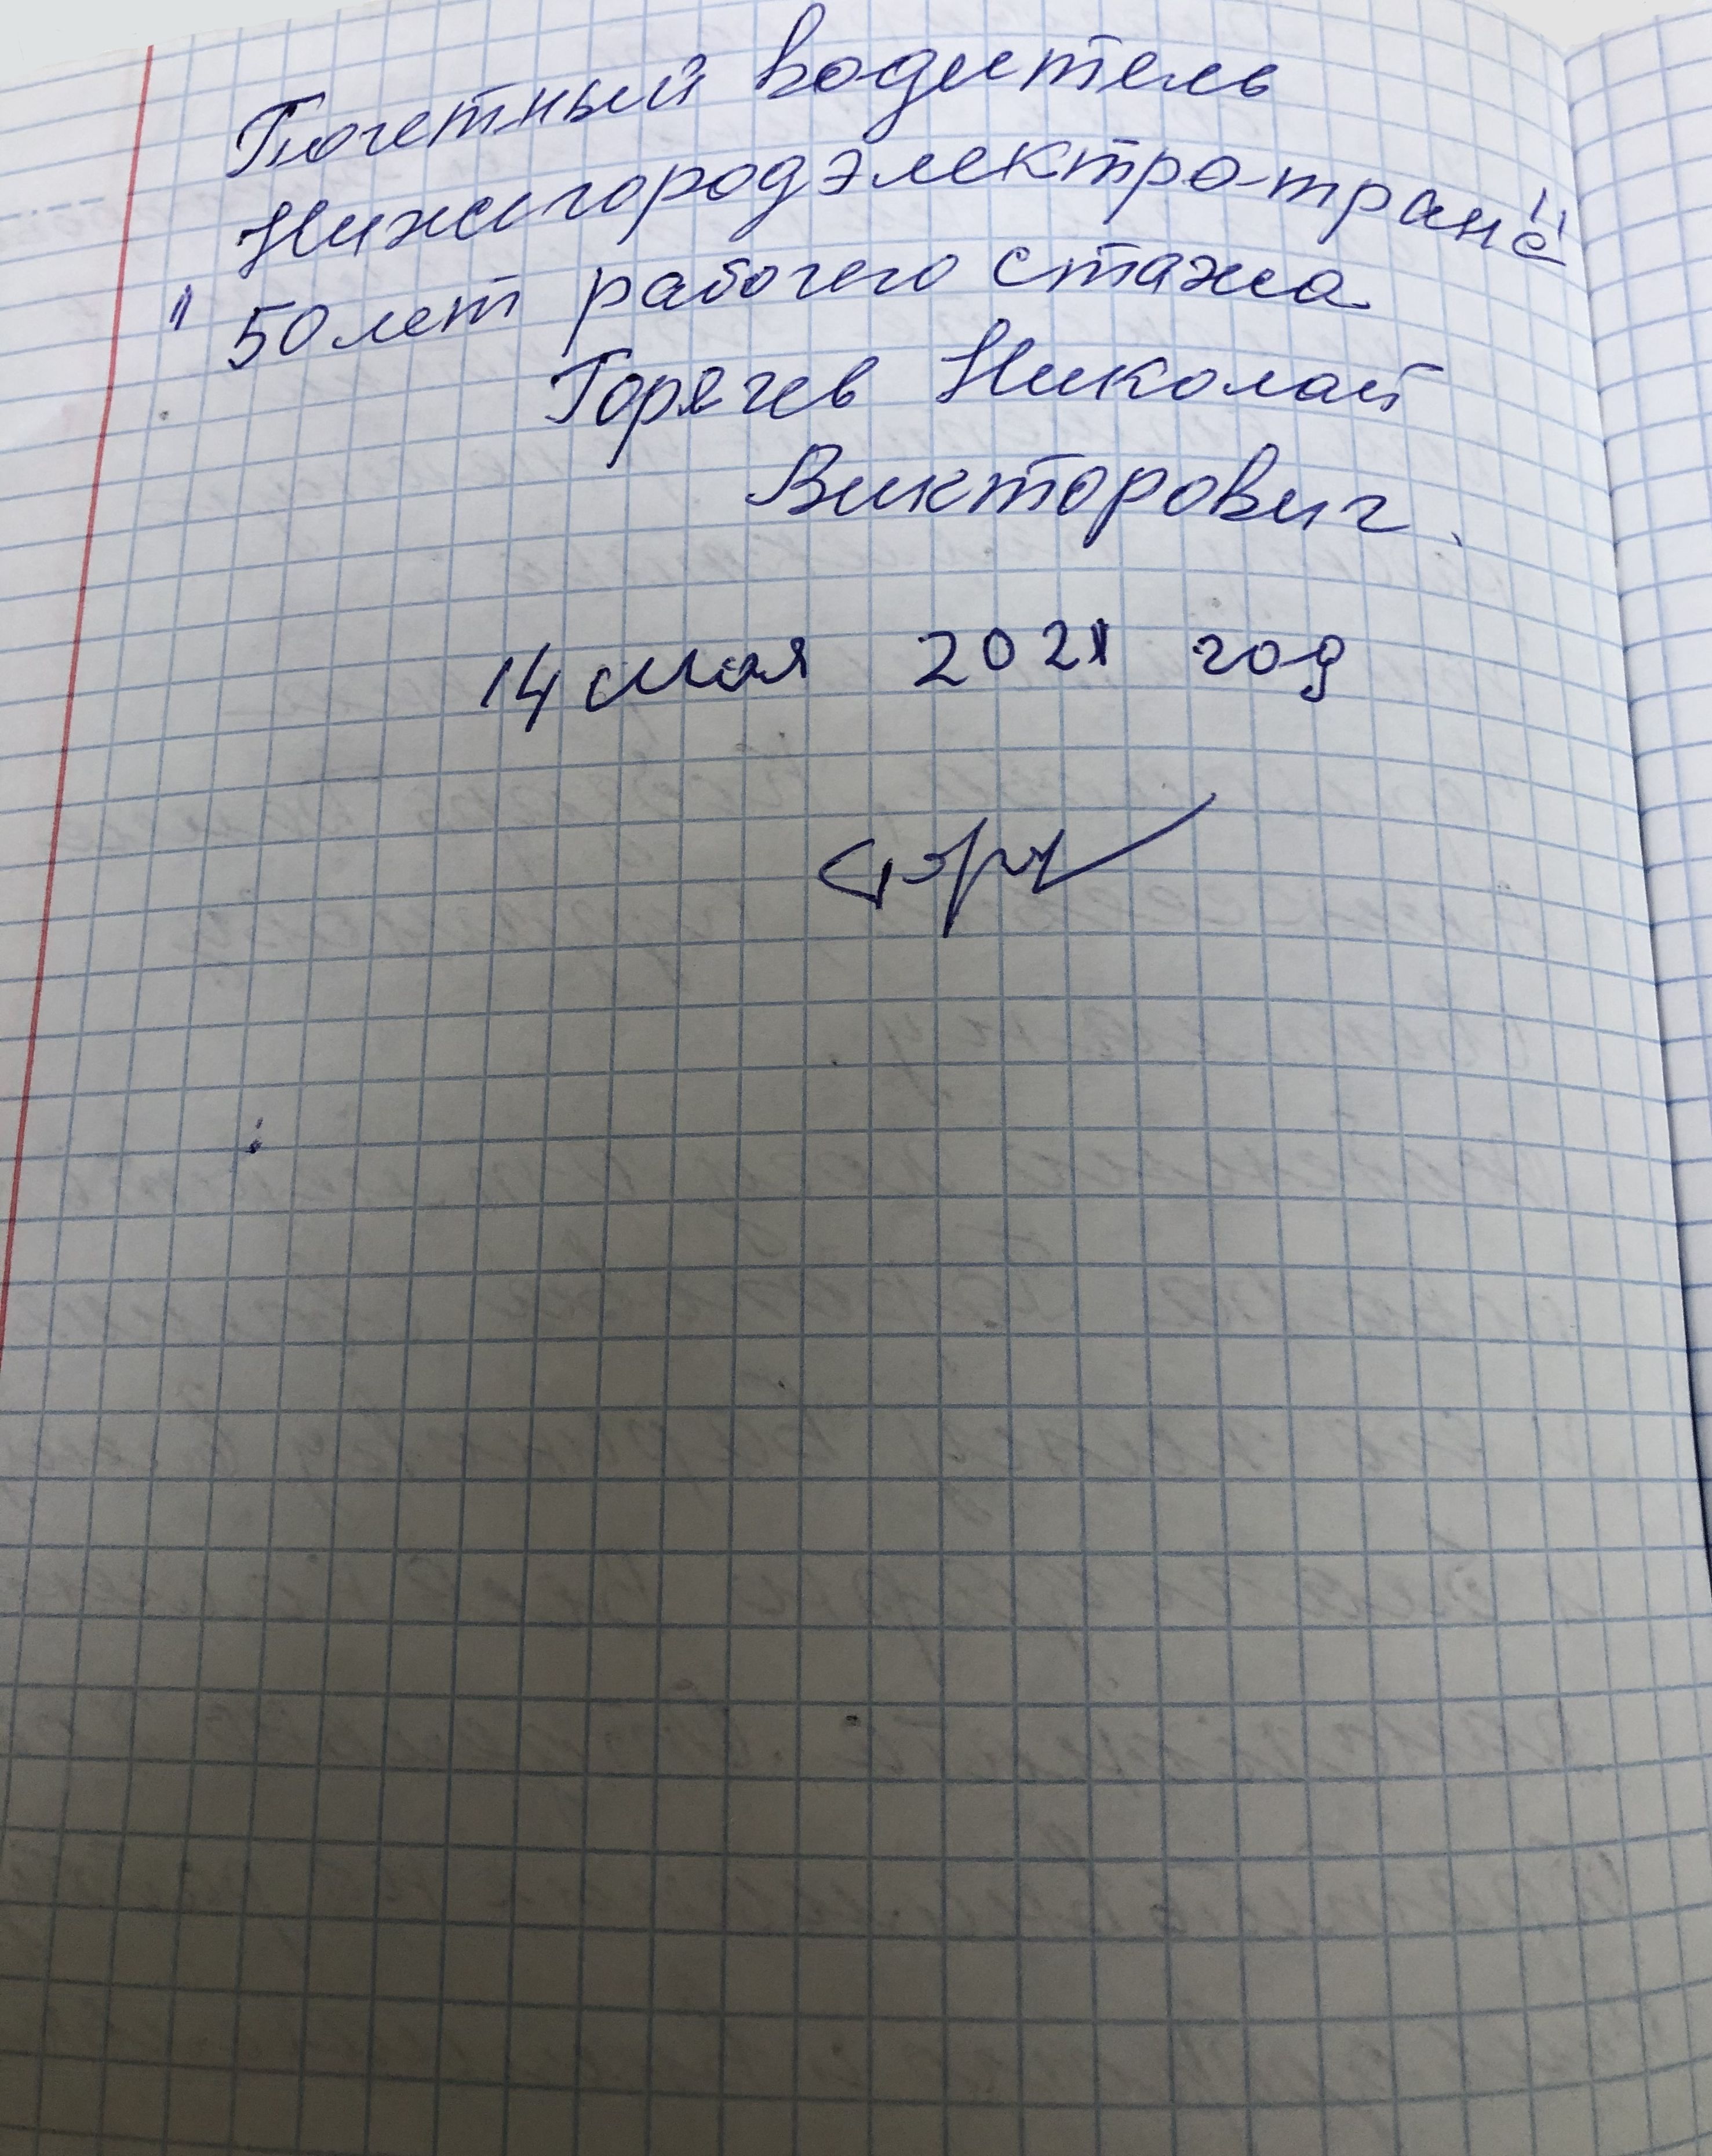 Почетный водитель
Нижегородэлектро-транс"
" 50 лет рабочего стажа
Горячев Николай
Викторович.
14 мая 2021 год